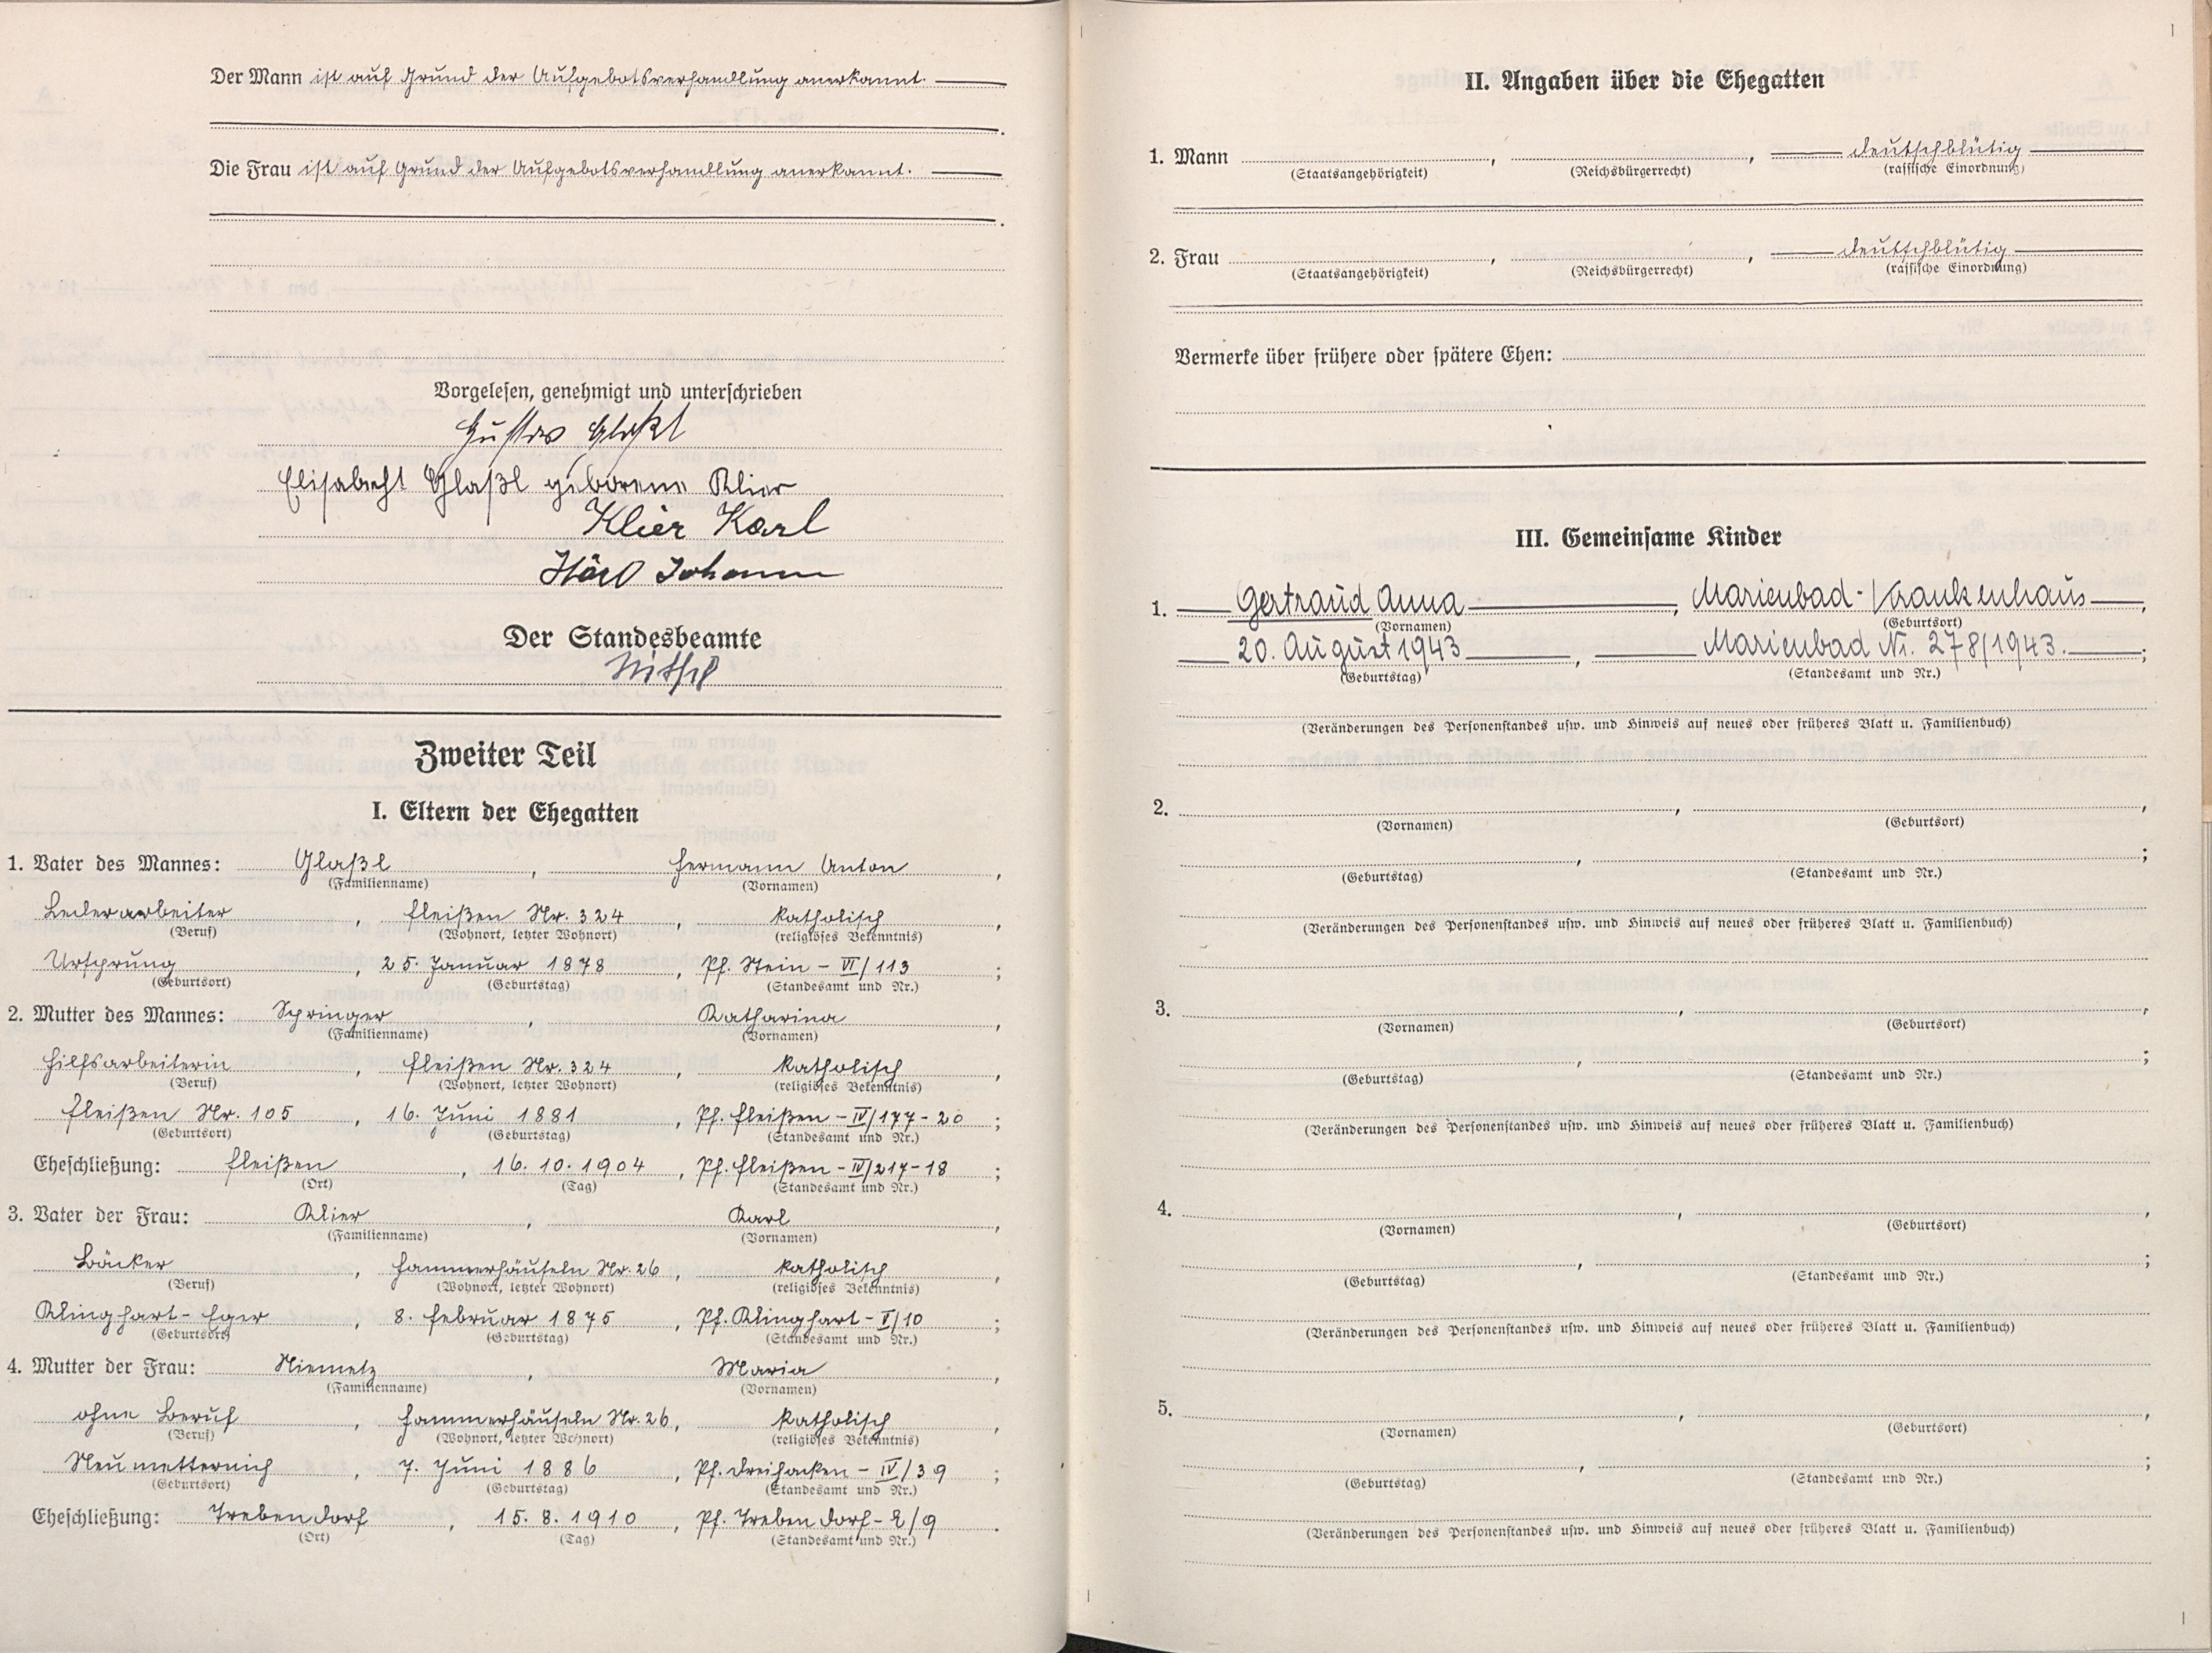 Der Mann ist auf Grund der Aufgebotsverhandlung anerkannt.
Die Frau ist auf Grund der Aufgebotsverhandlung anerkannt.
Vorgelesen, genehmigt und unterschrieben
Gustav Glaßl
Elisabeth Glaßl geborene Klier
Klier Karl
Johann
Der Standesbeamte
Zweiter Teil
I. Eltern der Ehegatten
1. Vater des Mannes: Glaßl, Hermann Anton,
(Familienname) (Vornamen)
Lederarbeiter, Fleißen Nr. 324, katholisch,
(Beruf) (Wohnort, letzter Wohnort) (religiöses Bekenntnis)
Ursprung, 25. Januar 1878, Pf. Stein - VI/113;
(Geburtsort) (Geburtstag) (Standesamt und Nr.)
2. Mutter des Mannes: Springer, Katharina,
(Familienname) (Vornamen)
Hilfsarbeiterin, Fleißen Nr. 324, katholisch,
(Beruf) (Wohnort, letzter Wohnort) (religiöses Bekenntnis)
Fleißen Nr. 105, 16. Juni 1881, Pf. Fleißen - IV/177-20;
(Geburtsort) (Geburtstag) (Standesamt und Nr.)
Eheschließung: Fleißen, 16.10.1904, Pf. Fleißen - IV/217-18;
(Ort) (Tag) (Standesamt und Nr.)
3. Vater der Frau: Klier, Karl,
(Familienname) (Vornamen)
Bäcker, Hammerhäuseln Nr. 26, katholisch,
(Beruf) (Wohnort, letzter Wohnort) (religiöses Bekenntnis)
Klinghart-Eger, 8. Februar 1875, Pf. Klinghart - I/10;
(Geburtsort) (Geburtstag) (Standesamt und Nr.)
4. Mutter der Frau: Niemetz, Maria,
(Familienname) (Vornamen)
ohne Beruf, Hammerhäuseln Nr. 26, katholisch,
(Beruf) (Wohnort, letzter Wohnort) (religiöses Bekenntnis)
Neumetternich, 7. Juni 1886, Pf. Dreihacken - IV/39;
(Geburtsort) (Geburtstag) (Standesamt und Nr.)
Eheschließung: Trebendorf, 15.8.1910, Pf. Trebendorf - 2/9.
(Ort) (Tag) (Standesamt und Nr.)
II. Angaben über die Ehegatten
1. Mann , , deutschblütig
(Staatsangehörigkeit) (Reichsbürgerrecht) (rassische Einordnung)
2. Frau , , deutschblütig
(Staatsangehörigkeit) (Reichsbürgerrecht) (rassische Einordnung)
Vermerke über frühere oder spätere Ehen:
III. Gemeinsame Kinder
1. Gertraud Anna, Marienbad-Krankenhaus,
(Vornamen) (Geburtsort)
20. August 1943, Marienbad Nr. 278/1943.;
(Geburtstag) (Standesamt und Nr.)
(Veränderungen des Personenstandes usw. und Hinweis auf neues oder früheres Blatt u. Familienbuch)
2. , ,
(Vornamen) (Geburtsort)
, ;
(Geburtstag) (Standesamt und Nr.)
(Veränderungen des Personenstandes usw. und Hinweis auf neues oder früheres Blatt u. Familienbuch)
3. , ,
(Vornamen) (Geburtsort)
, ;
(Geburtstag) (Standesamt und Nr.)
(Veränderungen des Personenstandes usw. und Hinweis auf neues oder früheres Blatt u. Familienbuch)
4. , ,
(Vornamen) (Geburtsort)
, ;
(Geburtstag) (Standesamt und Nr.)
(Veränderungen des Personenstandes usw. und Hinweis auf neues oder früheres Blatt u. Familienbuch)
5. , ,
(Vornamen) (Geburtsort)
, ;
(Geburtstag) (Standesamt und Nr.)
(Veränderungen des Personenstandes usw. und Hinweis auf neues oder früheres Blatt u. Familienbuch)